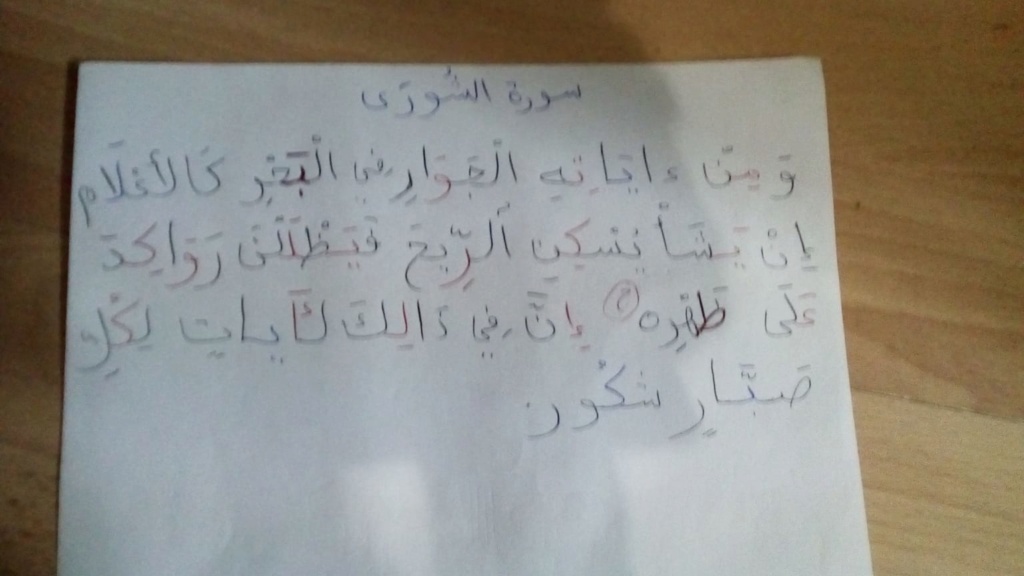 سورة الشُورَى
وَمِنْ ءايَاتِهِ الْجَوَارِ فِي الْبَحْرِ كَالأَعْلَامِ
إِنْ يَشَأْ يُسْكِنِ الرِّيحَ فَيَظْلَلْنَ رَوَاكِدَ
عَلَى ظَهْرِهِ إِنَّ فِي ذَالِكَ لَأَيَاتٍ لِكُلِّ
صَبَّارٍ شَكُورٍ